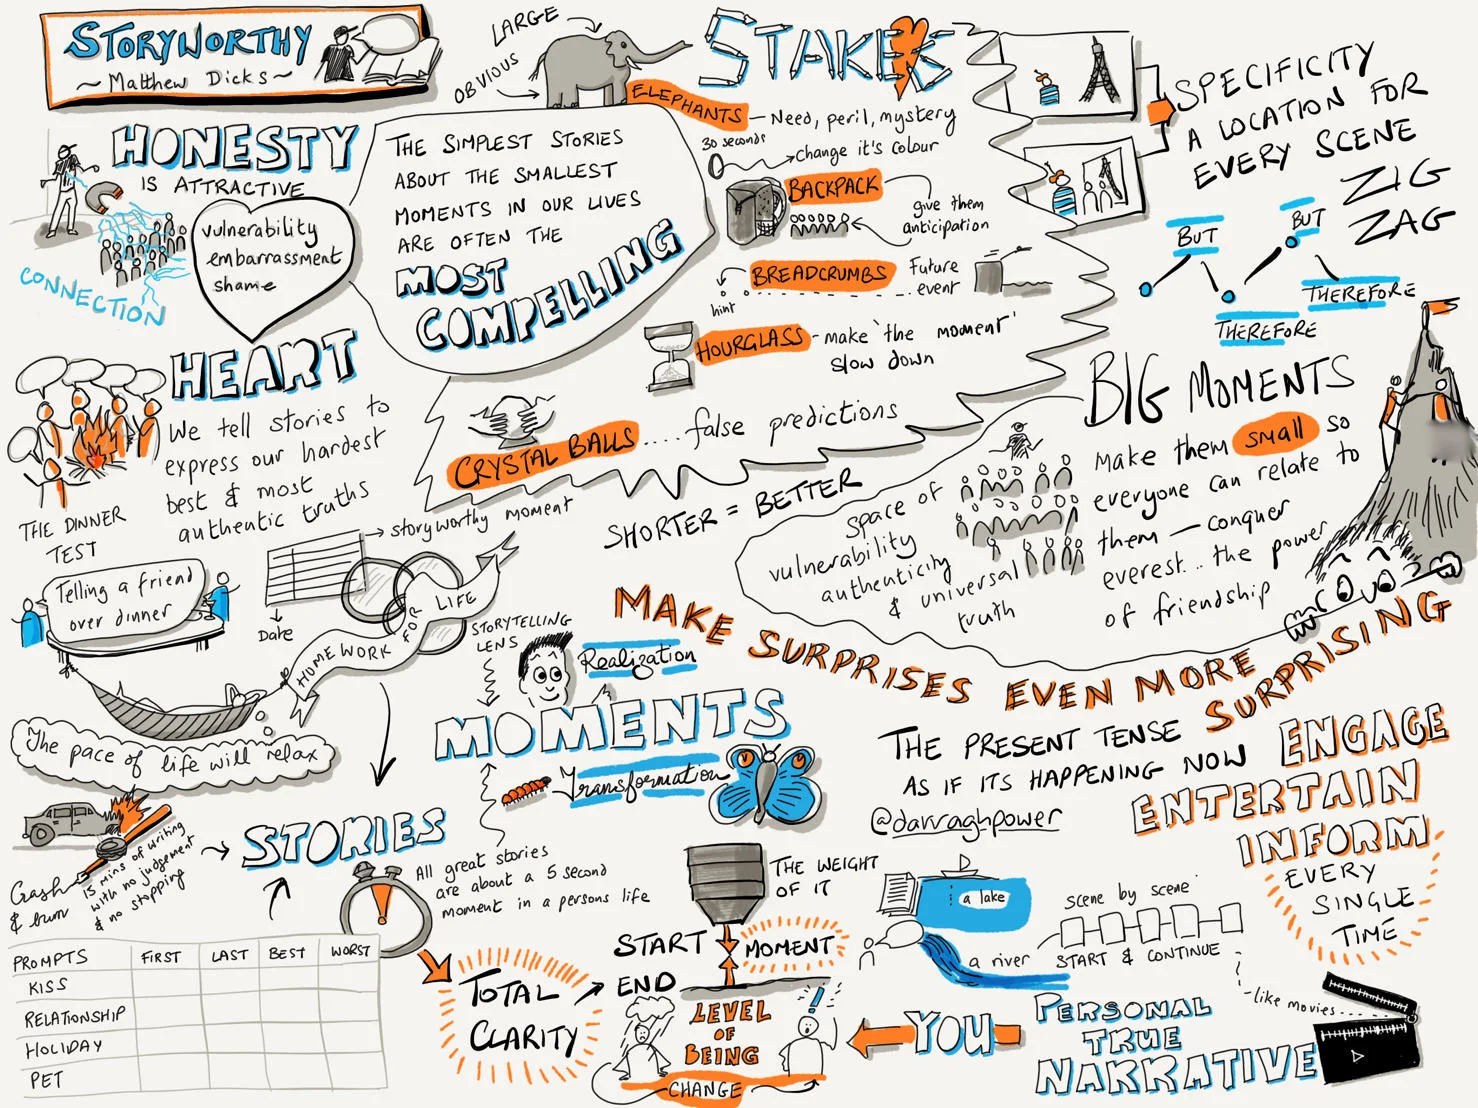 STORYWORTHY
~ Matthew Dicks ~
HONESTY
IS ATTRACTIVE
CONNECTION
vulnerability
embarrassment
shame
HEART
We tell stories to
express our hardest
best & most
authentic truths
THE DINNER
TEST
Telling a friend
over dinner
OBVIOUS
LARGE
THE SIMPLEST STORIES
ABOUT THE SMALLEST
MOMENTS IN OUR LIVES
ARE OFTEN THE
MOST
COMPELLING
STAKES
ELEPHANTS
— Need, peril, mystery
30 seconds
Change it's colour
BACKPACK
give them
anticipation
BREADCRUMBS
hint
Future
event
HOURGLASS
- make 'the moment'
slow down
CRYSTAL BALLS
.... false predictions
SPECIFICITY
A LOCATION FOR
EVERY SCENE
ZIG
ZAG
BUT
BUT
THEREFORE
THEREFORE
BIG MOMENTS
Make them small so
everyone can relate to
them — conquer
everest... the power
of friendship
SHORTER = BETTER
space of
vulnerability
authenticity
& universal
truth
MAKE SURPRISES EVEN MORE SURPRISING
storyworthy moment
Date
HOMEWORK
FOR
LIFE
The pace of life will relax
STORYTELLING
LENS
Realization
MOMENTS
Transformation
THE PRESENT TENSE
AS IF ITS HAPPENING NOW
@darraghpower
ENGAGE
ENTERTAIN
INFORM
EVERY
SINGLE
TIME
Crash
& burn
15 mins of writing
with no judgement
& no stopping
STORIES
All great stories
are about a 5 second
moment in a persons life
PROMPTS FIRST LAST BEST WORST
KISS
RELATIONSHIP
HOLIDAY
PET
TOTAL
CLARITY
THE WEIGHT
OF IT
START
MOMENT
END
LEVEL
OF
BEING
CHANGE
a lake
a river
scene by scene
START & CONTINUE
- like movies....
YOU
PERSONAL
TRUE
NARRATIVE